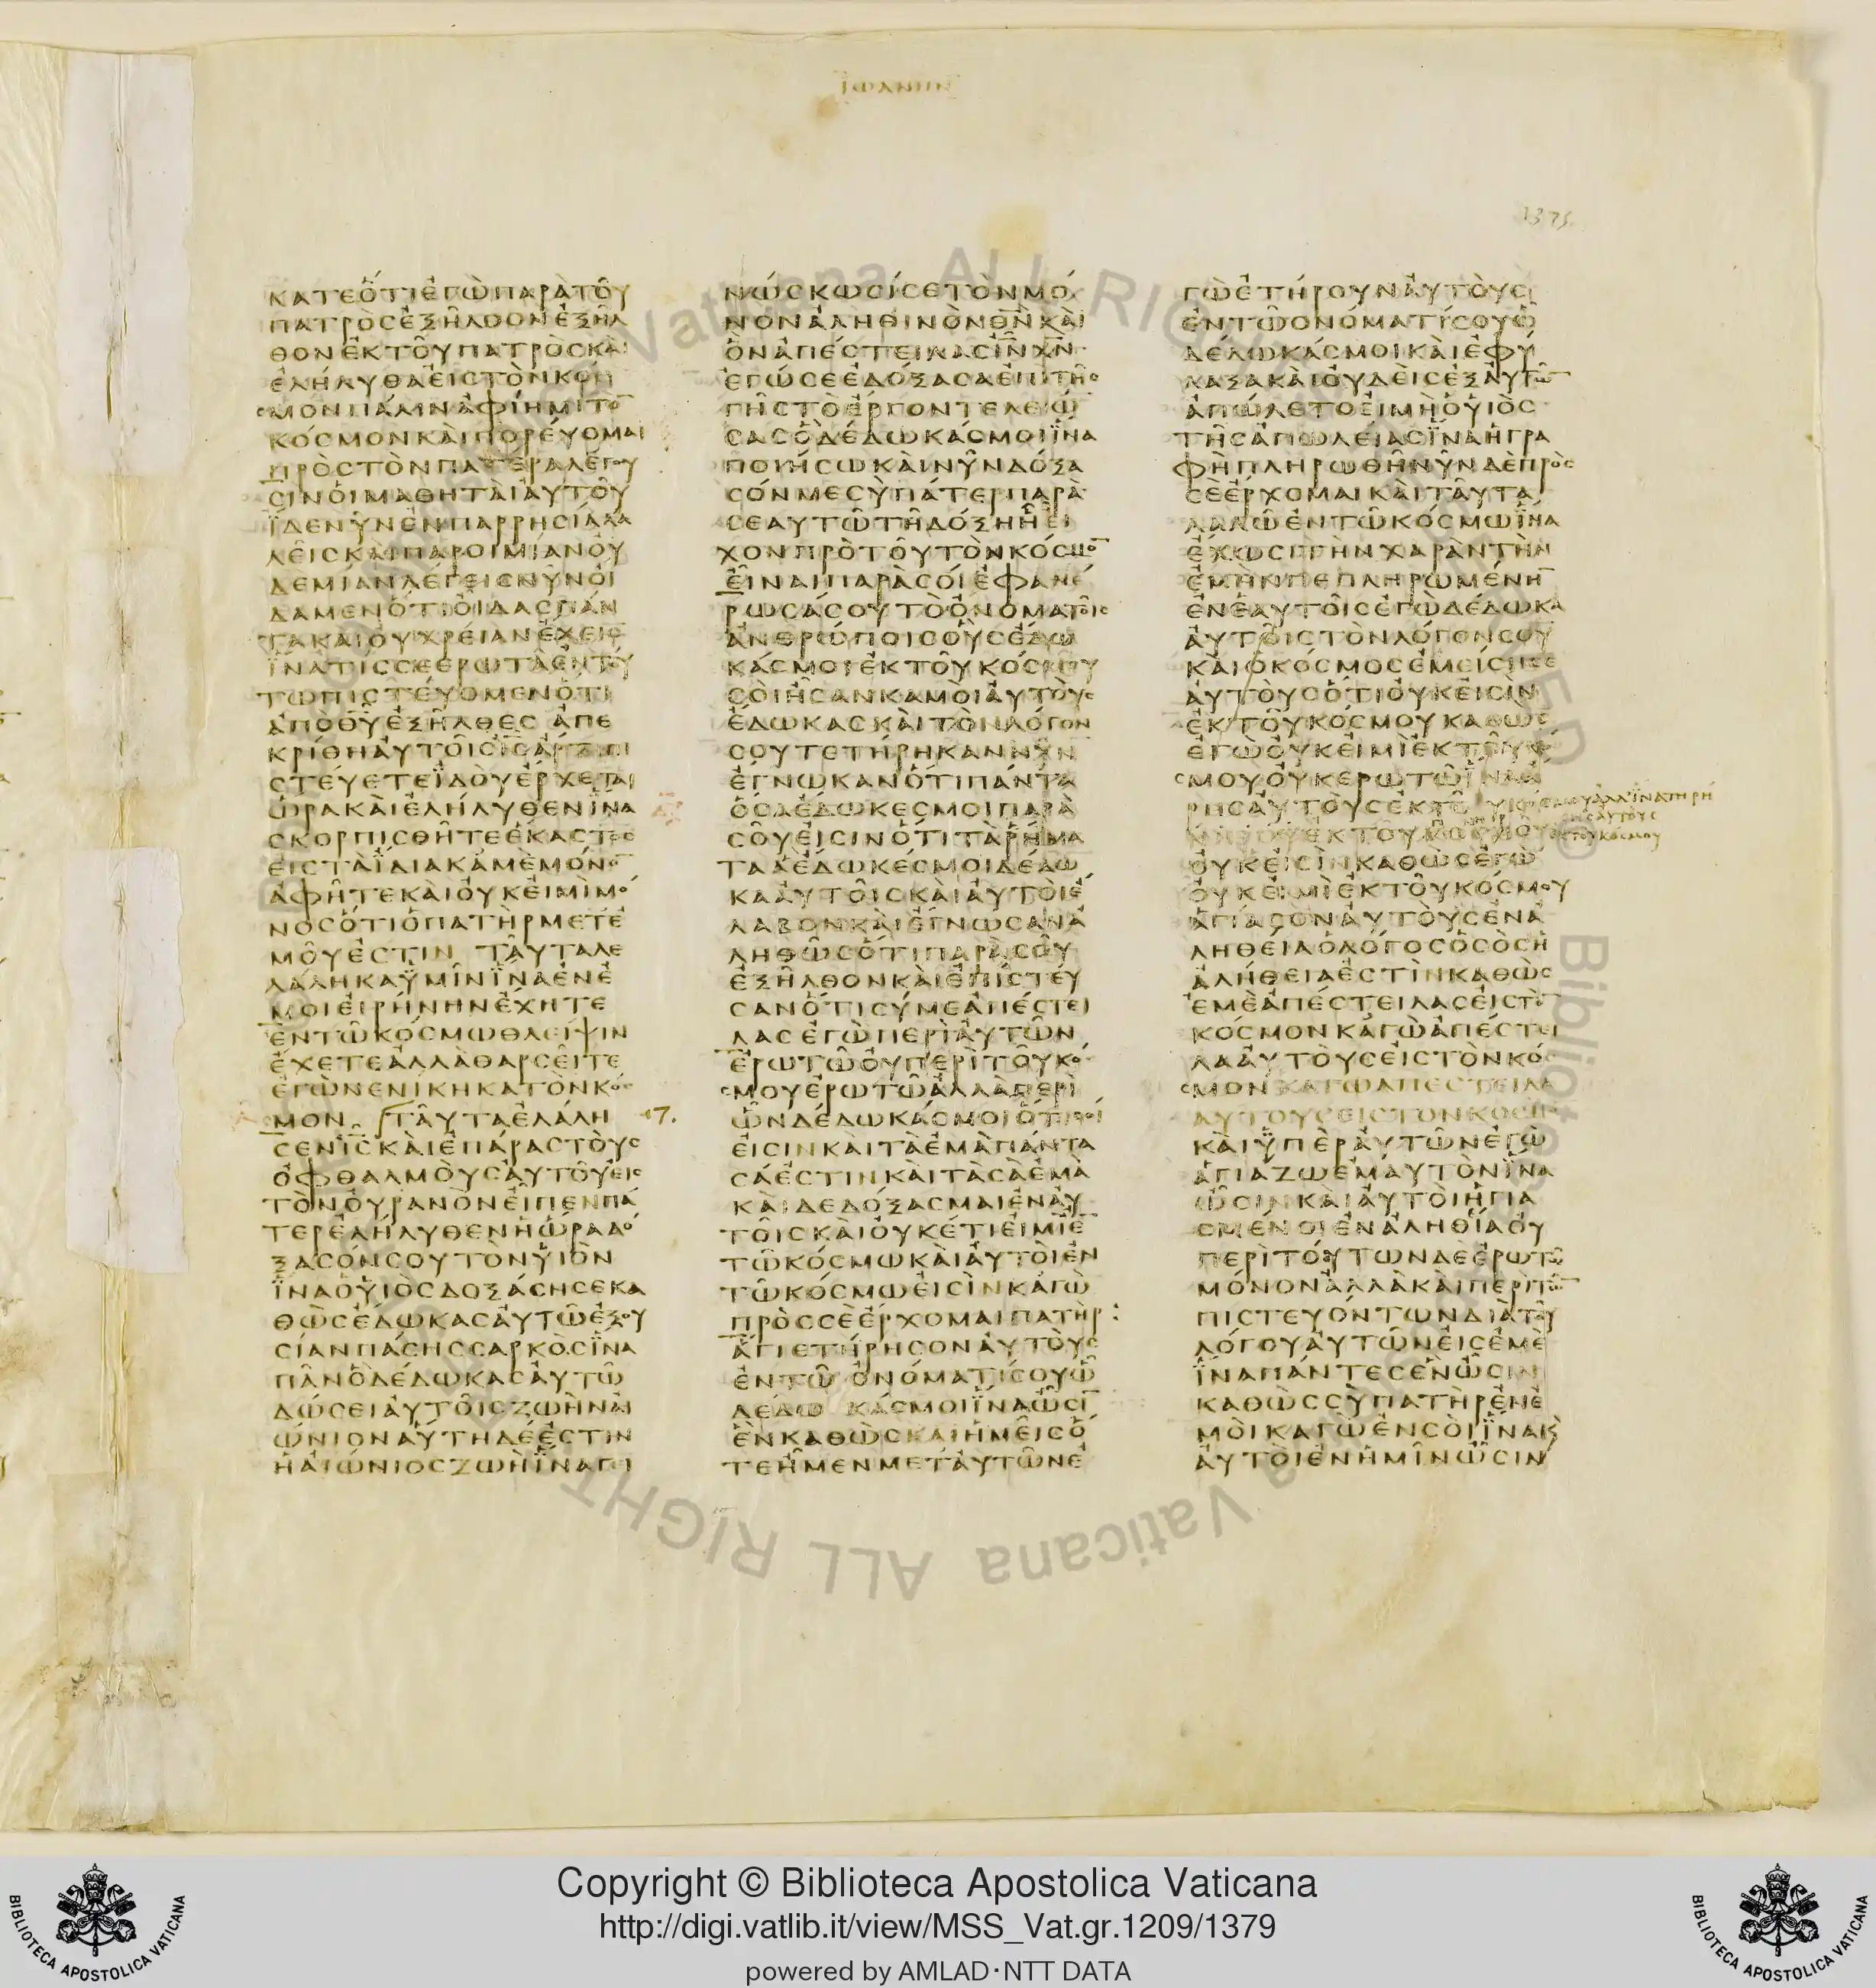 ΙΩΑΝΗΝ
1375
ΚΑΤΕΟΤΙΕΓΩΠΑΡΑΤΟΥ
ΠΑΤΡΟϹΕΞΗΛΘΟΝΕΞΗΛ
ΘΟΝΕΚΤΟΥΠΑΤΡΟϹΚΑΙ
ΕΛΗΛΥΘΑΕΙϹΤΟΝΚΟ
ϹΜΟΝΠΑΛΙΝΑΦΙΗΜΙΤΟ̅
ΚΟϹΜΟΝΚΑΙΠΟΡΕΥΟΜΑΙ
ΠΡΟϹΤΟΝΠΑΤΕΡΑΛΕΓΟΥ
ϹΙΝΟΙΜΑΘΗΤΑΙΑΥΤΟΥ
ΪΔΕΝΥΝΕΝΠΑΡΡΗϹΙΑΛΑ
ΛΕΙϹΚΑΙΠΑΡΟΙΜΙΑΝΟΥ
ΔΕΜΙΑΝΛΕΓΕΙϹΝΥΝΟΙ
ΔΑΜΕΝΟΤΙΟΙΔΑϹΠΑΝ
ΤΑΚΑΙΟΥΧΡΕΙΑΝΕΧΕΙϹ
ΪΝΑΤΙϹϹΕΕΡΩΤΑΕΝΤΟΥ
ΤΩΠΙϹΤΕΥΟΜΕΝΟΤΙ
ΑΠΟΘ̅Υ̅ΕΞΗΛΘΕϹ ΑΠΕ
ΚΡΙΘΗΑΥΤΟΙϹΙ̅Ϲ̅ΑΡΤΙΠΙ
ϹΤΕΥΕΤΕΪΔΟΥΕΡΧΕΤΑΙ
ΩΡΑΚΑΙΕΛΗΛΥΘΕΝΪΝΑ
ϹΚΟΡΠΙϹΘΗΤΕΕΚΑϹΤΟϹ
ΕΙϹΤΑΪΔΙΑΚΑΜΕΜΟΝΟ̅
ΑΦΗΤΕΚΑΙΟΥΚΕΙΜΙΜΟ
ΝΟϹΟΤΙΟΠΑΤΗΡΜΕΤΕ
ΜΟΥΕϹΤΙΝ ΤΑΥΤΑΛΕ
ΛΑΛΗΚΑΫΜΙΝΪΝΑΕΝΕ
ΜΟΙΕΙΡΗΝΗΝΕΧΗΤΕ
ΕΝΤΩΚΟϹΜΩΘΛΕΙΨΙΝ
ΕΧΕΤΕΑΛΛΑΘΑΡϹΕΙΤΕ
ΕΓΩΝΕΝΙΚΗΚΑΤΟΝΚΟϹ
ΜΟΝ ΤΑΥΤΑΕΛΑΛΗ 17.
ϹΕΝΙ̅Ϲ̅ΚΑΙΕΠΑΡΑϹΤΟΥϹ
ΟΦΘΑΛΜΟΥϹΑΥΤΟΥΕΙϹ
ΤΟΝΟΥΡΑΝΟΝΕΙΠΕΝΠΑ
ΤΕΡΕΛΗΛΥΘΕΝΗΩΡΑΔΟ
ΞΑϹΟΝϹΟΥΤΟΝΫΙΟΝ
ΪΝΑΟΫΙΟϹΔΟΞΑϹΗϹΕΚΑ
ΘΩϹΕΔΩΚΑϹΑΥΤΩΕΞΟΥ
ϹΙΑΝΠΑϹΗϹϹΑΡΚΟϹΪΝΑ
ΠΑΝΟΔΕΔΩΚΑϹΑΥΤΩ
ΔΩϹΕΙΑΥΤΟΙϹΖΩΗΝΑΙ
ΩΝΙΟΝΑΥΤΗΔΕΕϹΤΙΝ
ΗΑΙΩΝΙΟϹΖΩΗΪΝΑΓΙ
ΝΩϹΚΩϹΙϹΕΤΟΝΜΟ
ΝΟΝΑΛΗΘΙΝΟΝΘ̅Ν̅ΚΑΙ
ΟΝΑΠΕϹΤΕΙΛΑϹΙ̅Ν̅Χ̅Ν̅
ΕΓΩϹΕΕΔΟΞΑϹΑΕΠΙΤΗϹ
ΓΗϹΤΟΕΡΓΟΝΤΕΛΕΙΩ
ϹΑϹΟΔΕΔΩΚΑϹΜΟΙΪΝΑ
ΠΟΙΗϹΩΚΑΙΝΥΝΔΟΞΑ
ϹΟΝΜΕϹΥΠΑΤΕΡΠΑΡΑ
ϹΕΑΥΤΩΤΗΔΟΞΗΗΕΙ
ΧΟΝΠΡΟΤΟΥΤΟΝΚΟϹΜΟ̅
ΕΙΝΑΙΠΑΡΑϹΟΙΕΦΑΝΕ
ΡΩϹΑϹΟΥΤΟΟΝΟΜΑΤΟΙϹ
ΑΝΘΡΩΠΟΙϹΟΥϹΕΔΩ
ΚΑϹΜΟΙΕΚΤΟΥΚΟϹΜΟΥ
ϹΟΙΗϹΑΝΚΑΜΟΙΑΥΤΟΥϹ
ΕΔΩΚΑϹΚΑΙΤΟΝΛΟΓΟΝ
ϹΟΥΤΕΤΗΡΗΚΑΝΝΥΝ
ΕΓΝΩΚΑΝΟΤΙΠΑΝΤΑ
ΟϹΑΕΔΩΚΕϹΜΟΙΠΑΡΑ
ϹΟΥΕΙϹΙΝΟΤΙΤΑΡΗΜΑ
ΤΑΑΕΔΩΚΕϹΜΟΙΔΕΔΩ
ΚΑΑΥΤΟΙϹΚΑΙΑΥΤΟΙΕ
ΛΑΒΟΝΚΑΙΕΓΝΩϹΑΝΑ
ΛΗΘΩϹΟΤΙΠΑΡΑϹΟΥ
ΕΞΗΛΘΟΝΚΑΙΕΠΙϹΤΕΥ
ϹΑΝΟΤΙϹΥΜΕΑΠΕϹΤΕΙ
ΛΑϹΕΓΩΠΕΡΙΑΥΤΩΝ
ΕΡΩΤΩΟΥΠΕΡΙΤΟΥΚΟ
ϹΜΟΥΕΡΩΤΩΑΛΛΑΠΕΡΙ
ΩΝΔΕΔΩΚΑϹΜΟΙΟΤΙϹΟΙ
ΕΙϹΙΝΚΑΙΤΑΕΜΑΠΑΝΤΑ
ϹΑΕϹΤΙΝΚΑΙΤΑϹΑΕΜΑ
ΚΑΙΔΕΔΟΞΑϹΜΑΙΕΝΑΥ
ΤΟΙϹΚΑΙΟΥΚΕΤΙΕΙΜΙΕ̅
ΤΩΚΟϹΜΩΚΑΙΑΥΤΟΙΕΝ
ΤΩΚΟϹΜΩΕΙϹΙΝΚΑΓΩ
ΠΡΟϹϹΕΕΡΧΟΜΑΙΠΑΤΗΡ
ΑΓΙΕΤΗΡΗϹΟΝΑΥΤΟΥϹ
ΕΝΤΩ ΟΝΟΜΑΤΙϹΟΥΩ
ΔΕΔΩ ΚΑϹΜΟΙΪΝΑΩϹΙ̅
ΕΝΚΑΘΩϹΚΑΙΗΜΕΙϹΟ
ΤΕΗΜΕΝΜΕΤΑΥΤΩΝΕ
ΓΩΕΤΗΡΟΥΝΑΥΤΟΥϹ
ΕΝΤΩΟΝΟΜΑΤΙϹΟΥΩ
ΔΕΔΩΚΑϹΜΟΙΚΑΙΕΦΥ
ΛΑΞΑΚΑΙΟΥΔΕΙϹΕΞΑΥΤΩ̅
ΑΠΩΛΕΤΟΕΙΜΗΟΫΙΟϹ
ΤΗϹΑΠΩΛΕΙΑϹΪΝΑΗΓΡΑ
ΦΗΠΛΗΡΩΘΗΝΥΝΔΕΠΡΟϹ
ϹΕΕΡΧΟΜΑΙΚΑΙΤΑΥΤΑ
ΛΑΛΩΕΝΤΩΚΟϹΜΩΪΝΑ
ΕΧΩϹΙΤΗΝΧΑΡΑΝΤΗΝ
ΕΜΗΝΠΕΠΛΗΡΩΜΕΝΗ̅
ΕΝΕΑΥΤΟΙϹΕΓΩΔΕΔΩΚΑ
ΑΥΤΟΙϹΤΟΝΛΟΓΟΝϹΟΥ
ΚΑΙΟΚΟϹΜΟϹΕΜΕΙϹΗϹΕ
ΑΥΤΟΥϹΟΤΙΟΥΚΕΙϹΙΝ
ΕΚΤΟΥΚΟϹΜΟΥΚΑΘΩϹ
ΕΓΩΟΥΚΕΙΜΙΕΚΤΟΥΚΟ
ϹΜΟΥΟΥΚΕΡΩΤΩΪΝΑΑ
ΡΗϹΑΥΤΟΥϹΕΚΤΟΥΚΟ ϹΜΟΥΑΛΛΪΝΑΤΗΡΗ
ϹΑΥΤΟΥϹ
ΕΚΤΟΥΚΟϹΜΟΥ
ΟΥΚΕΙϹΙΝΚΑΘΩϹΕΓΩ
ΟΥΚΕΙΜΙΕΚΤΟΥΚΟϹΜΟΥ
ΑΓΙΑϹΟΝΑΥΤΟΥϹΕΝΑ
ΛΗΘΕΙΑΟΛΟΓΟϹΟϹΟϹΗ
ΑΛΗΘΕΙΑΕϹΤΙΝΚΑΘΩϹ
ΕΜΕΑΠΕϹΤΕΙΛΑϹΕΙϹΤΟ̅
ΚΟϹΜΟΝΚΑΓΩΑΠΕϹΤΕΙ
ΛΑΑΥΤΟΥϹΕΙϹΤΟΝΚΟ
ϹΜΟΝΚΑΓΩΑΠΕϹΤΕΙΛΑ
ΑΥΤΟΥϹΕΙϹΤΟΝΚΟϹΜ
ΚΑΙΫΠΕΡΑΥΤΩΝΕΓΩ
ΑΓΙΑΖΩΕΜΑΥΤΟΝΪΝΑ
ΩϹΙΝΚΑΙΑΥΤΟΙΗΓΙΑ
ϹΜΕΝΟΙΕΝΑΛΗΘΙΑΟΥ
ΠΕΡΙΤΟΥΤΩΝΔΕΕΡΩΤΩ
ΜΟΝΟΝΑΛΛΑΚΑΙΠΕΡΙΤΩ̅
ΠΙϹΤΕΥΟΝΤΩΝΔΙΑΤΟΥ
ΛΟΓΟΥΑΥΤΩΝΕΙϹΕΜΕ
ΪΝΑΠΑΝΤΕϹΕΝΩϹΙΝ
ΚΑΘΩϹϹΥΠΑΤΗΡΕΝΕ
ΜΟΙΚΑΓΩΕΝϹΟΙΪΝΑΚ
ΑΥΤΟΙΕΝΗΜΙΝΩϹΙΝ
Copyright © Biblioteca Apostolica Vaticana
http://digi.vatlib.it/view/MSS_Vat.gr.1209/1379
powered by AMLAD·NTT DATA
BIBLIOTECA APOSTOLICA VATICANA
BIBLIOTECA APOSTOLICA VATICANA